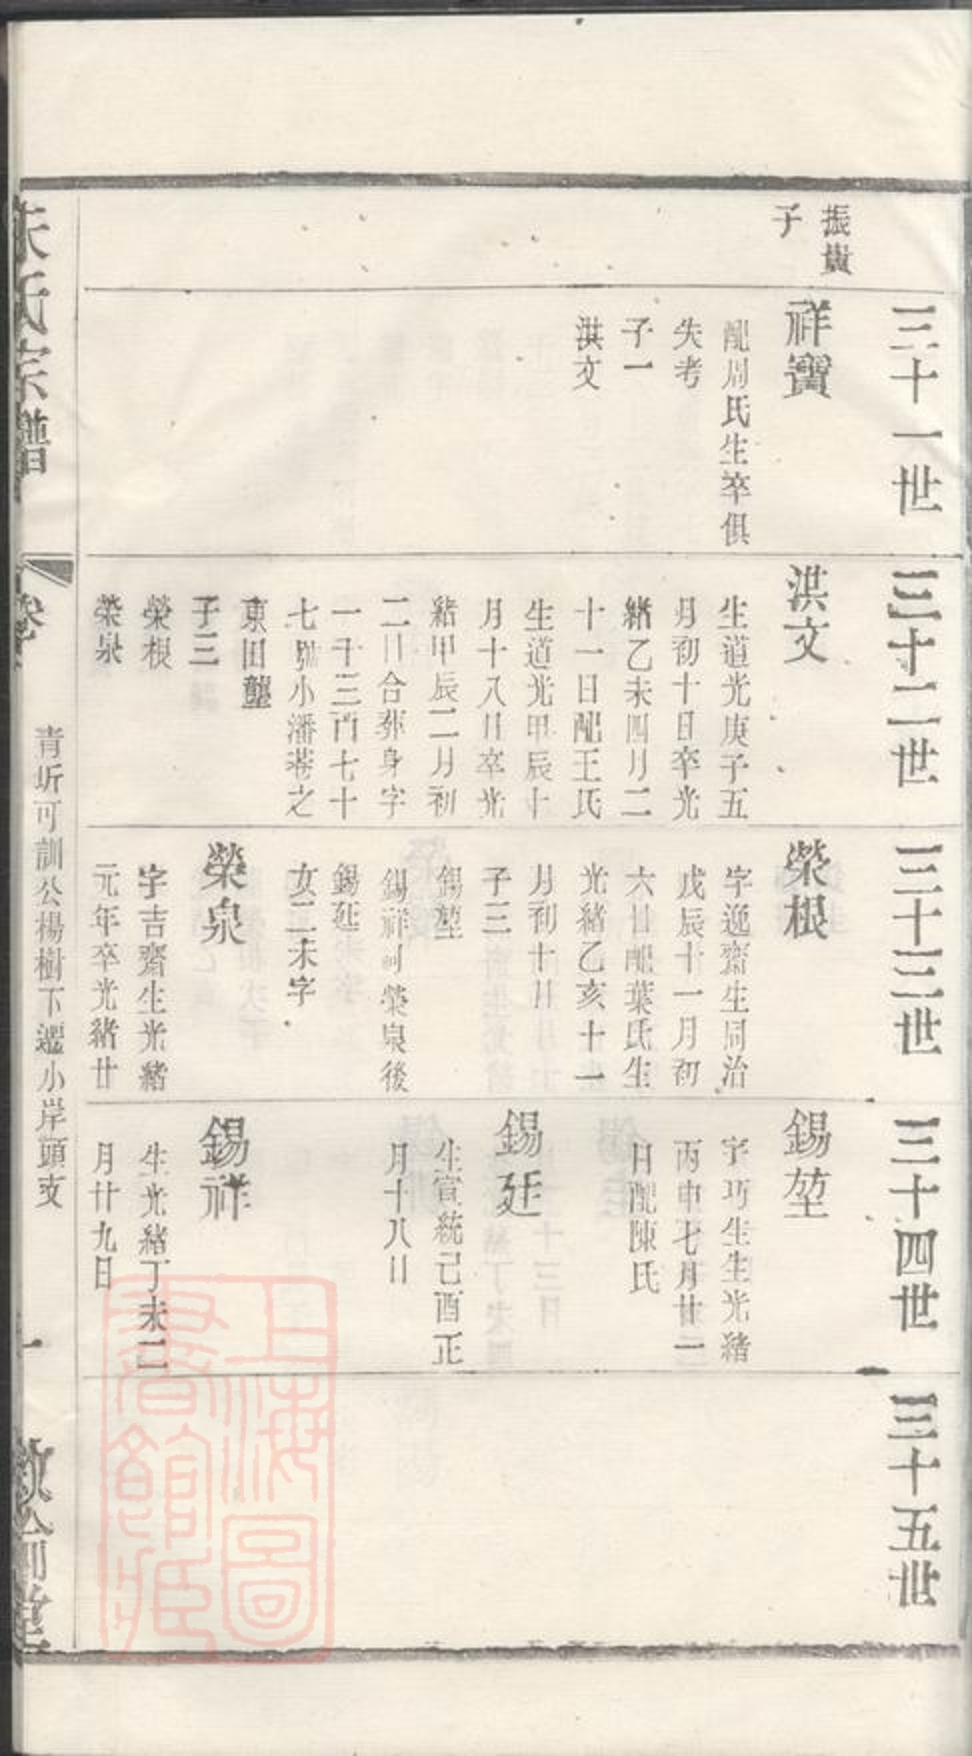 三十一世
振貴
子
祥寶
配周氏生卒俱
失考
子一
洪文
三十二世
洪文
生道光庚子五
月初十日卒光
緒乙未四月二
十一日配王氏
生道光甲辰十
月十八日卒光
緒甲辰二月初
二日合葬身字
一千三百七十
七號小潘巷之
東田壟
子三
榮根
榮泉
三十三世
榮根
字逸齋生同治
戊辰十一月初
六日配葉氏生
光緒乙亥十一
月初十日
子三
錫堃
錫祥嗣榮泉後
錫延
女二未字
榮泉
字吉齋生光緒
元年卒光緒廿
三十四世
錫堃
字巧生生光緒
丙申七月廿一
日配陳氏
錫廷
生宣統己酉正
月十八日
錫祥
生光緒丁未二
月廿九日
三十五世
朱氏宗譜
卷
青圻可訓公楊樹下遷小岸頭支
一
敘倫堂
上海圖
書館藏